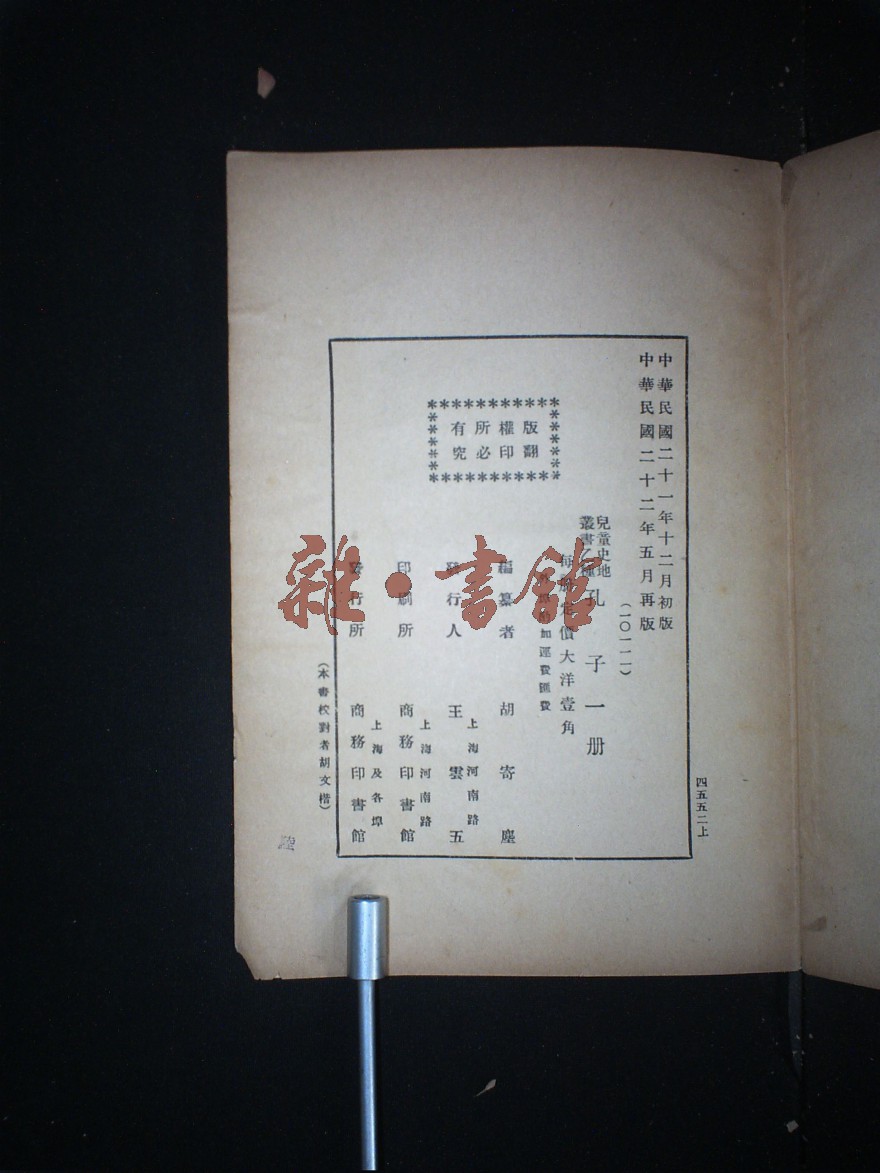 中華民國二十一年十二月初版
中華民國二十二年五月再版
(一〇一一一)
兒童史地
叢書乙種
孔子一册
每册定價大洋壹角
外埠酌加運費匯費
版權所有
翻印必究
編纂者 胡寄塵
上海河南路
發行人 王雲五
上海河南路
印刷所 商務印書館
上海及各埠
發行所 商務印書館
(本書校對者胡文楷)
四五五二上
雜·書館